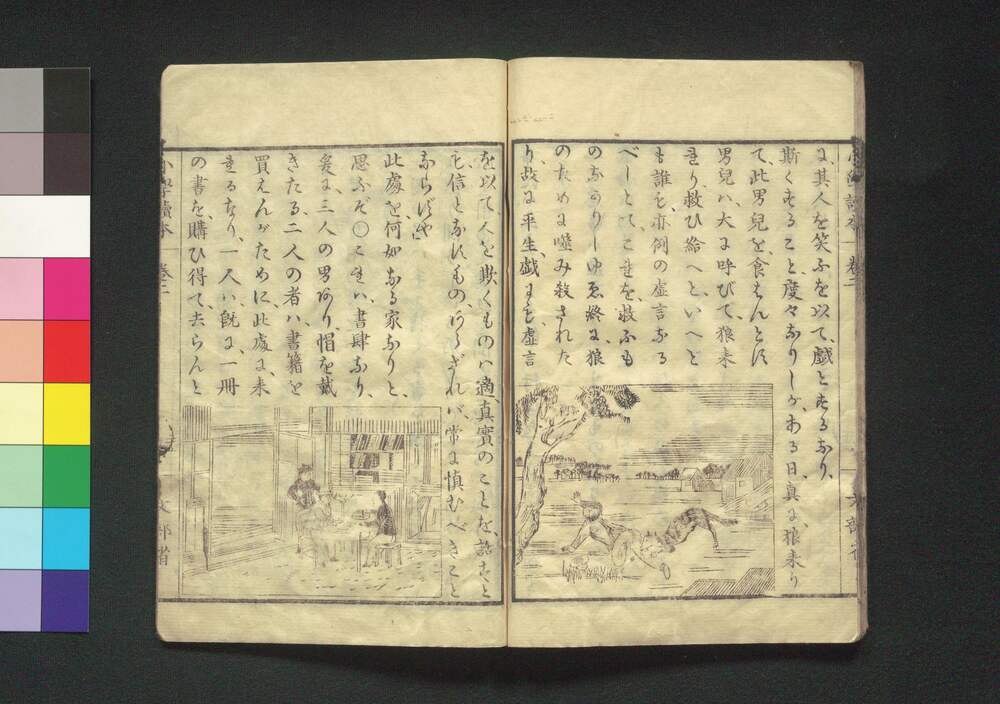 に、其人を笑ふを以て、戯とするなり、
斯くすること、度々なりしが、ある日、真に、狼来り
て、此男兒を、食はんとに
男兒ハ、大に呼びて、狼来
れり、救ひ給へと、いへど
も、誰も、亦例の虚言なる
べしとて、これを、救ふも
のなかりしゆゑ、終に、狼
のために噬み殺された
り、故に、平生、戯にも、虚言
を以て、人を欺くものハ、適真實のことを、話すと
も、信とするもの、あらざれバ、常に慎むべきこと
ならずや
此處を何如なる家なりと、
思ふぞ〇これハ、書肆なり、
爰に、三人の男あり、帽を戴
きたる、二人の者ハ、書籍を
買えんがために、此處に、来
れるなり、一人ハ、既に、一冊
の書を、購ひ得て、去らんと
小學讀本 巻二
文部省